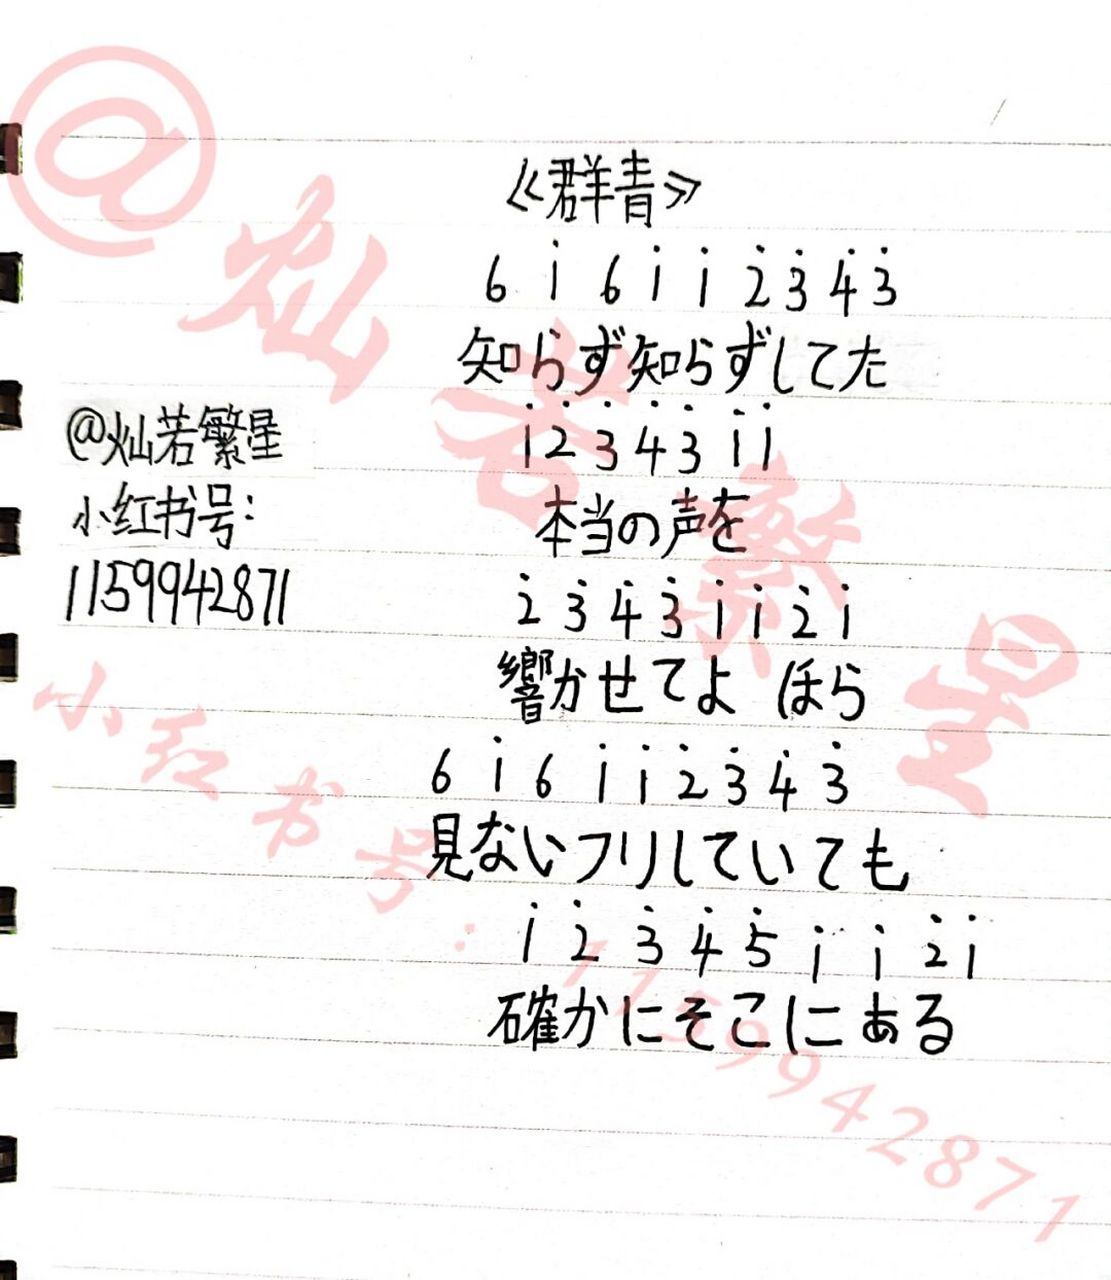 《群青》
6 i 6 i i 2̇ 3̇ 4̇ 3̇
知らず知らずしてた
i 2̇ 3̇ 4̇ 3̇ i i
本当の声を
2̇ 3̇ 4̇ 3̇ i i 2̇ i
響かせてよ ほら
6 i 6 i i 2̇ 3̇ 4̇ 3̇
見ないフリしていても
i 2̇ 3̇ 4̇ 5̇ i i 2̇ i
確かにそこにある
@灿若繁星
小红书号:
1159942871
@灿若繁星
小红书号:1159942871